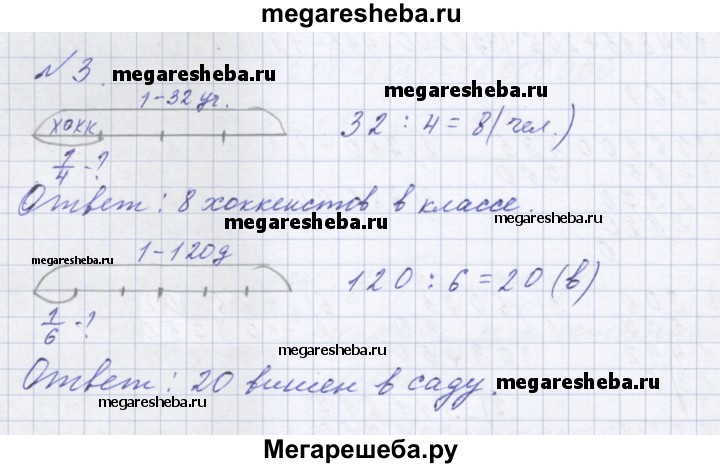 megaresheba.ru
№ 3.
megaresheba.ru
1-32 уч.
megaresheba.ru
хокк
32 : 4 = 8 (чел.)
1/4 - ?
Ответ : 8 хоккеистов в классе.
megaresheba.ru
megaresheba.ru
1-120д
megaresheba.ru
120 : 6 = 20 (в)
1/6 - ?
megaresheba.ru
megaresheba.ru
Ответ : 20 вишен в саду.
megaresheba.ru
megaresheba.ru
Мегарешеба.ру